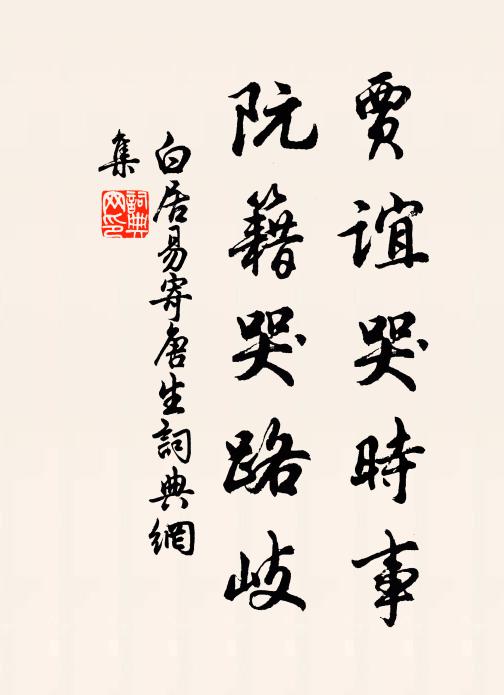 賈誼哭時事
阮籍哭路歧
白居易寄唐生詞典網
集
詞典網印